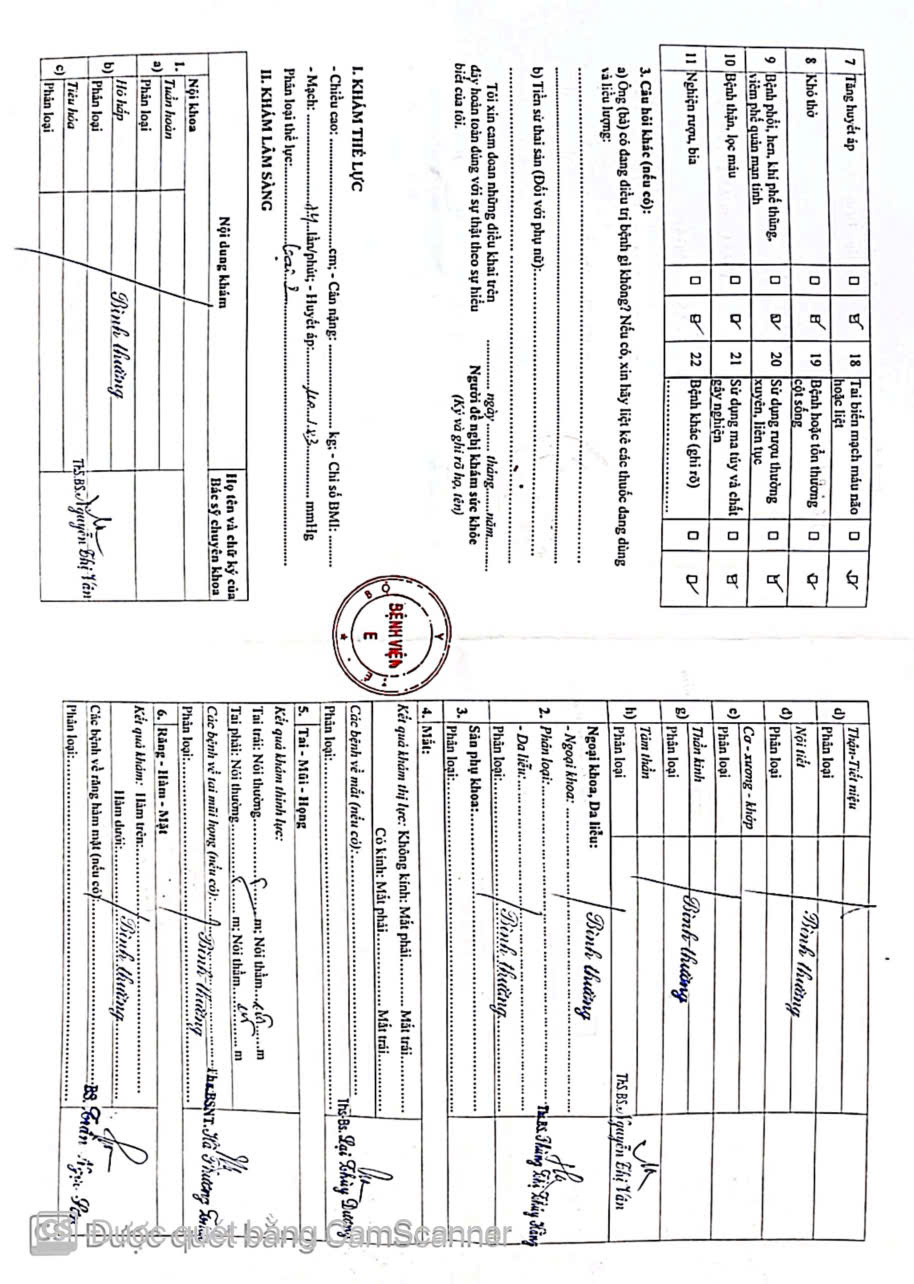 7 Tăng huyết áp □ ☑ 18 Tai biến mạch máu não hoặc liệt □ ☑
8 Khó thở □ ☑ 19 Bệnh hoặc tổn thương cột sống □ ☑
9 Bệnh phổi, hen, khí phế thũng, viêm phế quản mạn tính □ ☑ 20 Sử dụng rượu thường xuyên, liên tục □ ☑
10 Bệnh thận, lọc máu □ ☑ 21 Sử dụng ma túy và chất gây nghiện □ ☑
11 Nghiện rượu, bia □ ☑ 22 Bệnh khác (ghi rõ) □ ☑
3. Câu hỏi khác (nếu có):
a) Ông (bà) có đang điều trị bệnh gì không? Nếu có, xin hãy liệt kê các thuốc đang dùng
và liều lượng:
b) Tiền sử thai sản (Đối với phụ nữ):
Tôi xin cam đoan những điều khai trên
đây hoàn toàn đúng với sự thật theo sự hiểu
biết của tôi.
ngày ........ tháng......năm
Người đề nghị khám sức khỏe
(Ký và ghi rõ họ, tên)
I. KHÁM THỂ LỰC
- Chiều cao: ........cm; - Cân nặng: ........ kg; - Chỉ số BMI:
- Mạch: ........ lần/phút; - Huyết áp: ........ mmHg
Phân loại thể lực:
II. KHÁM LÂM SÀNG
Nội dung khám
Họ tên và chữ ký của
Bác sỹ chuyên khoa
1. Nội khoa
a) Tuần hoàn
Phân loại
b) Hô hấp
Phân loại
c) Tiêu hóa
Phân loại
Bình thường
ThS.BS. Nguyễn Thị Vân
BỘ Y TẾ
BỆNH VIỆN
E
d) Thận-Tiết niệu
Phân loại
đ) Nội tiết
Phân loại
Bình thường
e) Cơ - xương - khớp
Phân loại
g) Thần kinh
Phân loại
Bình thường
h) Tâm thần
Phân loại
ThS.BS. Nguyễn Thị Vân
2. Ngoại khoa, Da liễu:
- Ngoại khoa: Bình thường
Phân loại:
- Da liễu:
Phân loại: Bình thường
3. Sản phụ khoa:
Phân loại:
4. Mắt:
Kết quả khám thị lực: Không kính: Mắt phải........ Mắt trái
Có kính: Mắt phải........ Mắt trái
Các bệnh về mắt (nếu có):
Phân loại:
Ths-Bs. Lại Thùy Dương
5. Tai - Mũi - Họng
Kết quả khám thính lực:
Tai trái: Nói thường........ m; Nói thầm........ m
Tai phải: Nói thường........ m; Nói thầm........ m
Các bệnh về tai mũi họng (nếu có): Bình thường
Phân loại:
6. Răng - Hàm - Mặt
Kết quả khám: Hàm trên:
Hàm dưới: Bình thường
Các bệnh về răng hàm mặt (nếu có)
Phân loại:
CS Được quét bằng CamScanner